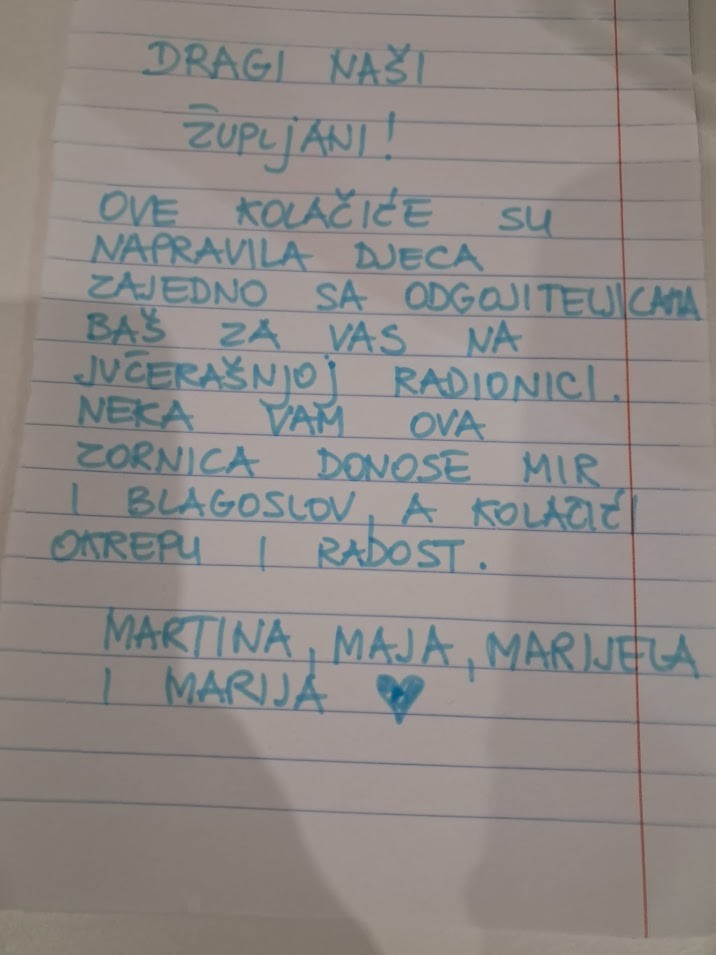 DRAGI NAŠI
ŽUPLJANI!
OVE KOLAČIĆE SU
NAPRAVILA DJECA
ZAJEDNO SA ODGOJITELJICAMA
BAŠ ZA VAS NA
JUČERAŠNJOJ RADIONICI.
NEKA VAM OVA
ZORNICA DONOSE MIR
I BLAGOSLOV, A KOLAČIĆI
OKREPU I RADOST.
MARTINA, MAJA, MARIJELA
I MARIJA ♥